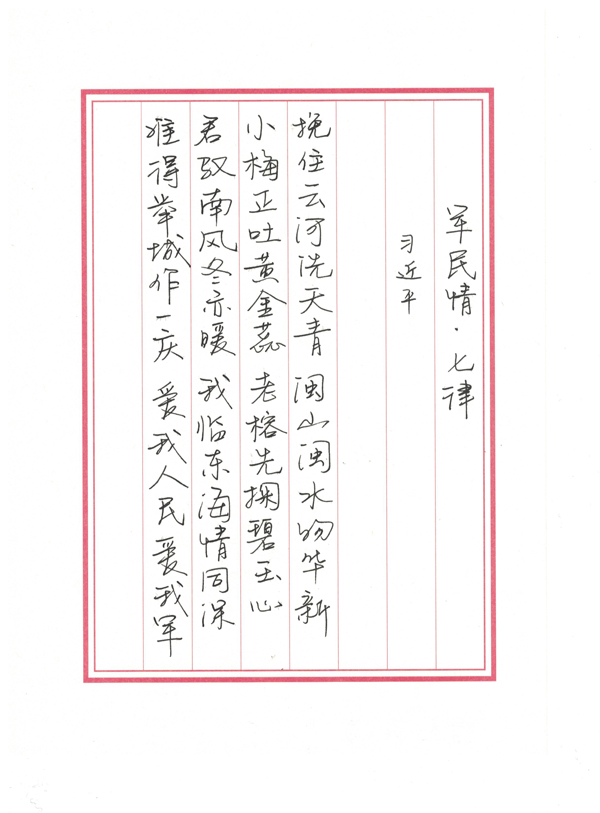 军民情·七律
习近平
挽住云河洗天青 闽山闽水物华新
小梅正吐黄金蕊 老榕先掬碧玉心
君驭南风冬亦暖 我临东海情同深
难得举城作一庆 爱我人民爱我军